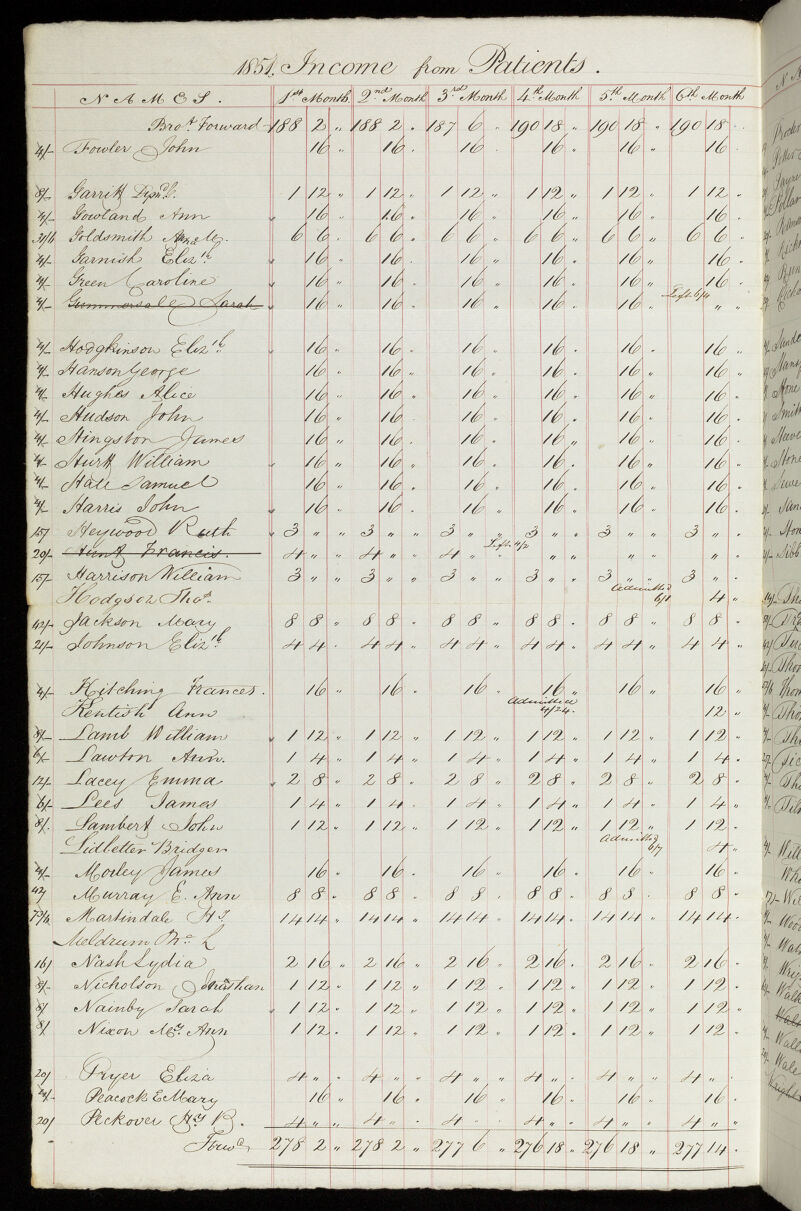 1851. Income from Patients.
NAMES. 1st Month 2nd Month 3rd Month 4th Month 5th Month 6th Month
Brot. Forward 188 2 " 188 2 " 187 6 " 190 18 " 190 18 " 190 18 "
4/- Fowler John 16 " 16 " 16 " 16 " 16 " 16 "
8/- 1 12 " 1 12 " 1 12 " 1 12 " 1 12 " 1 12 "
4/- Gowland Ann 16 " 16 " 16 " 16 " 16 " 16 "
Goldsmith 6 6 " 6 6 " 6 6 " 6 6 " 6 6 " 6 6 "
4/- Garnish Elizth 16 " 16 " 16 " 16 " 16 " 16 "
4/- Green Caroline 16 " 16 " 16 " 16 " 16 " 16 "
4/- Gummersale Sarah 16 " 16 " 16 " 16 " 16 " Left 6/4 " "
4/- Hodgkinson Elizth 16 " 16 " 16 " 16 " 16 " 16 "
4/- Hanson George 16 " 16 " 16 " 16 " 16 " 16 "
4/- Hughes Alice 16 " 16 " 16 " 16 " 16 " 16 "
4/- Hudson John 16 " 16 " 16 " 16 " 16 " 16 "
4/- Hingston James 16 " 16 " 16 " 16 " 16 " 16 "
4/- Hurst William 16 " 16 " 16 " 16 " 16 " 16 "
4/- Hall Samuel 16 " 16 " 16 " 16 " 16 " 16 "
4/- Harris John 16 " 16 " 16 " 16 " 16 " 16 "
15/ Heywood Ruth 3 " " 3 " " 3 " " 3 " " 3 " " 3 " "
20/- Hunt Francis. 4 " " 4 " " 4 " " Left 4/2 " " " " " "
15/- Harrison William 3 " " 3 " " 3 " " 3 " " 3 " " 3 " "
Hodgson Thos. Admitted 6/1 4 "
42/- Jackson Mary 8 8 " 8 8 " 8 8 " 8 8 " 8 8 " 8 8 "
21/- Johnson Elizth 4 4 " 4 4 " 4 4 " 4 4 " 4 4 " 4 4 "
4/- Kitching Frances. 16 " 16 " 16 " 16 " 16 " 16 "
Kentish Ann Admitted 4/24. 12 "
8/- Lamb William 1 12 " 1 12 " 1 12 " 1 12 " 1 12 " 1 12 "
6/- Lawton Ann. 1 4 " 1 4 " 1 4 " 1 4 " 1 4 " 1 4 "
12/- Lacey Emma 2 8 " 2 8 " 2 8 " 2 8 " 2 8 " 2 8 "
6/- Lees James 1 4 " 1 4 " 1 4 " 1 4 " 1 4 " 1 4 "
8/. Lambert John 1 12 " 1 12 " 1 12 " 1 12 " 1 12 " 1 12 "
Lidletter Bridger Admitted 6/7 4 "
4/- Morley James 16 " 16 " 16 " 16 " 16 " 16 "
42/ Murray E. Ann 8 8 " 8 8 " 8 8 " 8 8 " 8 8 " 8 8 "
Martindale Hy 14 14 " 14 14 " 14 14 " 14 14 " 14 14 " 14 14 "
Meldrum L
16/ Nash Lydia 2 16 " 2 16 " 2 16 " 2 16 " 2 16 " 2 16 "
8/- Nicholson Jonathan 1 12 " 1 12 " 1 12 " 1 12 " 1 12 " 1 12 "
8/ Nainby Sarah 1 12 " 1 12 " 1 12 " 1 12 " 1 12 " 1 12 "
8/ Nixon My Ann 1 12 " 1 12 " 1 12 " 1 12 " 1 12 " 1 12 "
20/ Pryer Eliza 4 " " 4 " " 4 " " 4 " " 4 " " 4 " "
4/- Peacock E Mary 16 " 16 " 16 " 16 " 16 " 16 "
20/ Peckover Hy B. 4 " " 4 " " 4 " " 4 " " 4 " " 4 " "
Forwd 278 2 " 278 2 " 277 6 " 276 18 " 276 18 " 277 14 "